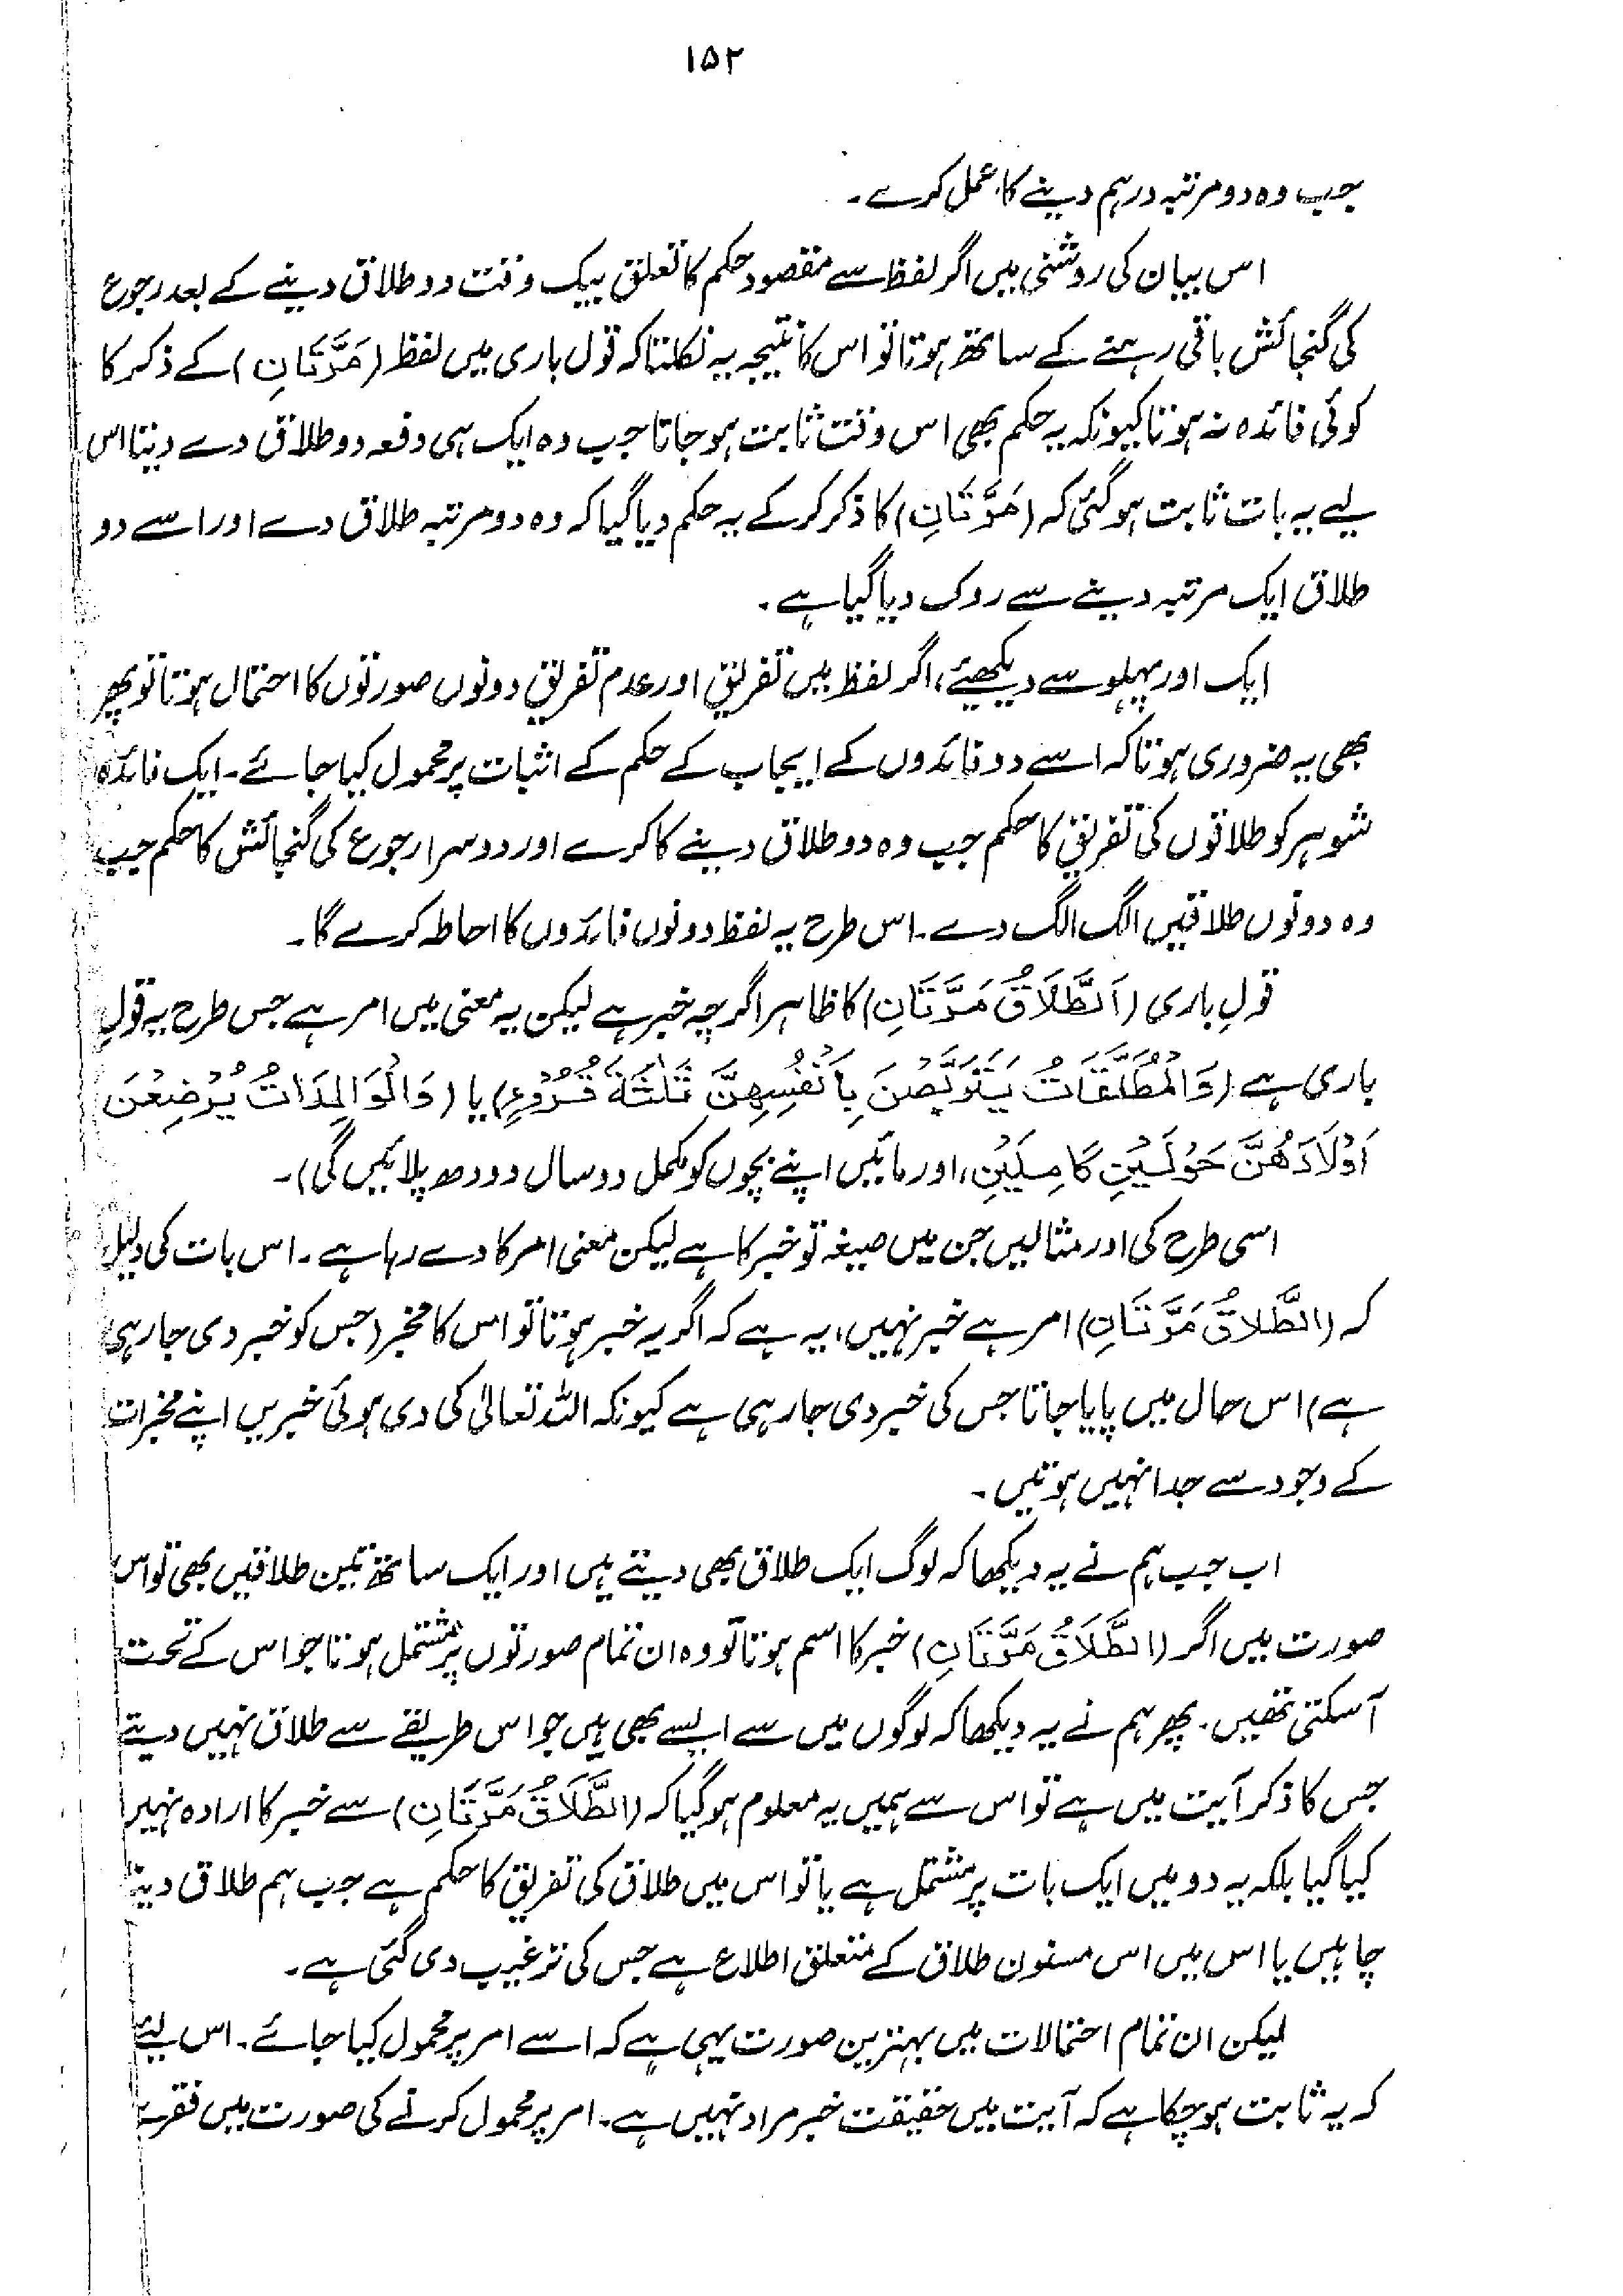 ۱۵۲
جب وہ دو مرتبہ درہم دینے کا عمل کرے۔
اس بیان کی روشنی میں اگر لفظ سے مقصود حکم کا تعلق بیک وقت دو طلاق دینے کے بعد رجوع
کی گنجائش باقی رہنے کے ساتھ ہوتا تو اس کا نتیجہ یہ نکلتا کہ قول باری میں لفظ (مَرَّتَانِ) کے ذکر کا
کوئی فائدہ نہ ہوتا کیونکہ یہ حکم بھی اس وقت ثابت ہو جاتا جب وہ ایک ہی دفعہ دو طلاق دے دیتا اس
لیے یہ بات ثابت ہو گئی کہ (مَرَّتَانِ) کا ذکر کر کے یہ حکم دیا گیا کہ وہ دو مرتبہ طلاق دے اور اسے دو
طلاق ایک مرتبہ دینے سے روک دیا گیا ہے۔
ایک اور پہلو سے دیکھیئے، اگر لفظ میں تفریق اور عدم تفریق دونوں صورتوں کا احتمال ہوتا تو پھر
بھی یہ ضروری ہوتا کہ اسے دو فائدوں کے ایجاب کے حکم کے اثبات پر محمول کیا جائے۔ ایک فائدہ
شوہر کو طلاقوں کی تفریق کا حکم جب وہ دو طلاق دینے کا کرے اور دوسرا رجوع کی گنجائش کا حکم جب
وہ دونوں طلاقیں الگ الگ دے۔ اس طرح یہ لفظ دونوں فائدوں کا احاطہ کرے گا۔
قولِ باری (اَلطَّلَاقُ مَرَّتَانِ) کا ظاہر اگرچہ خبر ہے لیکن یہ معنی میں امر ہے جس طرح یہ قولِ
باری ہے (وَالْمُطَلَّقَاتُ يَتَرَبَّصْنَ بِأَنْفُسِهِنَّ ثَلٰثَةَ قُرُوْءٍ) یا (وَالْوَالِدَاتُ يُرْضِعْنَ
اَوْلَادَهُنَّ حَوْلَيْنِ كَامِلَيْنِ، اور مائیں اپنے بچوں کو مکمل دو سال دودھ پلائیں گی)۔
اسی طرح کی اور مثالیں جن میں صیغہ تو خبر کا ہے لیکن معنی امر کا دے رہا ہے۔ اس بات کی دلیل
کہ (الطَّلَاقُ مَرَّتَانِ) امر ہے خبر نہیں، یہ ہے کہ اگر یہ خبر ہوتا تو اس کا مخبر (جس کو خبر دی جا رہی
ہے) اس حال میں پایا جاتا جس کی خبر دی جا رہی ہے کیونکہ اللہ تعالیٰ کی دی ہوئی خبریں اپنے مخبرات
کے وجود سے جدا نہیں ہوتیں۔
اب جب ہم نے یہ دیکھا کہ لوگ ایک طلاق بھی دیتے ہیں اور ایک ساتھ تین طلاقیں بھی تو اس
صورت میں اگر (الطَّلَاقُ مَرَّتَانِ) خبر کا اسم ہوتا تو وہ ان تمام صورتوں پر مشتمل ہوتا جو اس کے تحت
آسکتی تھیں۔ پھر ہم نے یہ دیکھا کہ لوگوں میں سے ایسے بھی ہیں جو اس طریقے سے طلاق نہیں دیتے
جس کا ذکر آیت میں ہے تو اس سے ہمیں یہ معلوم ہو گیا کہ (الطَّلَاقُ مَرَّتَانِ) سے خبر کا ارادہ نہیں
کیا گیا بلکہ یہ دو میں ایک بات پر مشتمل ہے یا تو اس میں طلاق کی تفریق کا حکم ہے جب ہم طلاق دینا
چاہیں یا اس میں اس مسنون طلاق کے متعلق اطلاع ہے جس کی ترغیب دی گئی ہے۔
لیکن ان تمام احتمالات میں بہترین صورت یہی ہے کہ اسے امر پر محمول کیا جائے۔ اس لیے
کہ یہ ثابت ہو چکا ہے کہ آیت میں حقیقت خبر مراد نہیں ہے۔ امر پر محمول کرنے کی صورت میں فقرہ